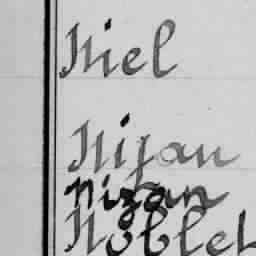 Niel
Nizan
Nizan
Noblet